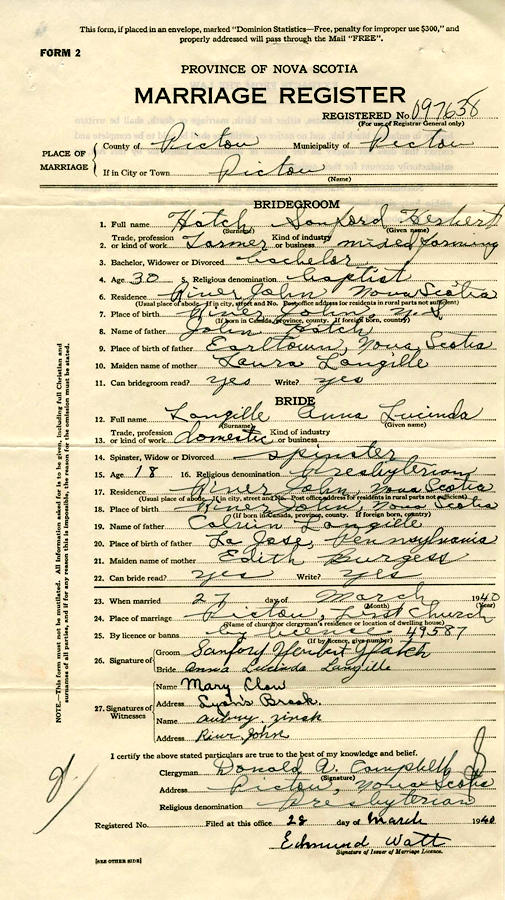 This form, if placed in an envelope, marked "Dominion Statistics—Free, penalty for improper use $300," and
properly addressed will pass through the Mail "FREE".
FORM 2
PROVINCE OF NOVA SCOTIA
MARRIAGE REGISTER
REGISTERED No. 097638
(For use of Registrar General only)
PLACE OF MARRIAGE
County of Pictou Municipality of Pictou
If in City or Town Pictou
(Name)
BRIDEGROOM
1. Full name Hatch Sanford Herbert
(Surname) (Given name)
2. Trade, profession or kind of work Farmer Kind of industry or business mixed farming
3. Bachelor, Widower or Divorced bachelor
4. Age 30 5. Religious denomination baptist
6. Residence River John, Nova Scotia
(Usual place of abode. If in city, street and No. Post office address for residents in rural parts not sufficient)
7. Place of birth River John, N.S.
(If born in Canada, province, county. If foreign born, country)
8. Name of father John Hatch
9. Place of birth of father Earltown, Nova Scotia
10. Maiden name of mother Laura Langille
11. Can bridegroom read? yes Write? yes
BRIDE
12. Full name Langille Anna Lucinda
(Surname) (Given name)
13. Trade, profession or kind of work domestic Kind of industry or business
14. Spinster, Widow or Divorced spinster
15. Age 18 16. Religious denomination Presbyterian
17. Residence River John, Nova Scotia
(Usual place of abode. If in city, street and No. Post office address for residents in rural parts not sufficient)
18. Place of birth River John, Nova Scotia
(If born in Canada, province, county. If foreign born, country)
19. Name of father Calvin Langille
20. Place of birth of father La Jose, Pennsylvania
21. Maiden name of mother Edith Burgess
22. Can bride read? yes Write? yes
23. When married 27 day of March 1940
(Month) (Year)
24. Place of marriage Pictou, First Church
(Name of church or clergyman's residence or location of dwelling house)
25. By licence or banns by licence 49587
(If by licence, give number)
26. Signature of
Groom Sanford Herbert Hatch
Bride Anna Lucinda Langille
27. Signatures of Witnesses
Name Mary Clow
Address Lyons Brook
Name Audrey Zinck
Address River John
I certify the above stated particulars are true to the best of my knowledge and belief.
Clergyman Donald A. Campbell
(Signature)
Address Pictou, Nova Scotia
Religious denomination Presbyterian
Registered No. Filed at this office 28 day of March 1940
Edmund Watt
Signature of Issuer of Marriage Licence.
[SEE OTHER SIDE]
NOTE.—This form must not be mutilated. All information asked for is to be given, including full Christian and
surnames of all parties, and if for any reason this is impossible, the reason for the omission must be stated.